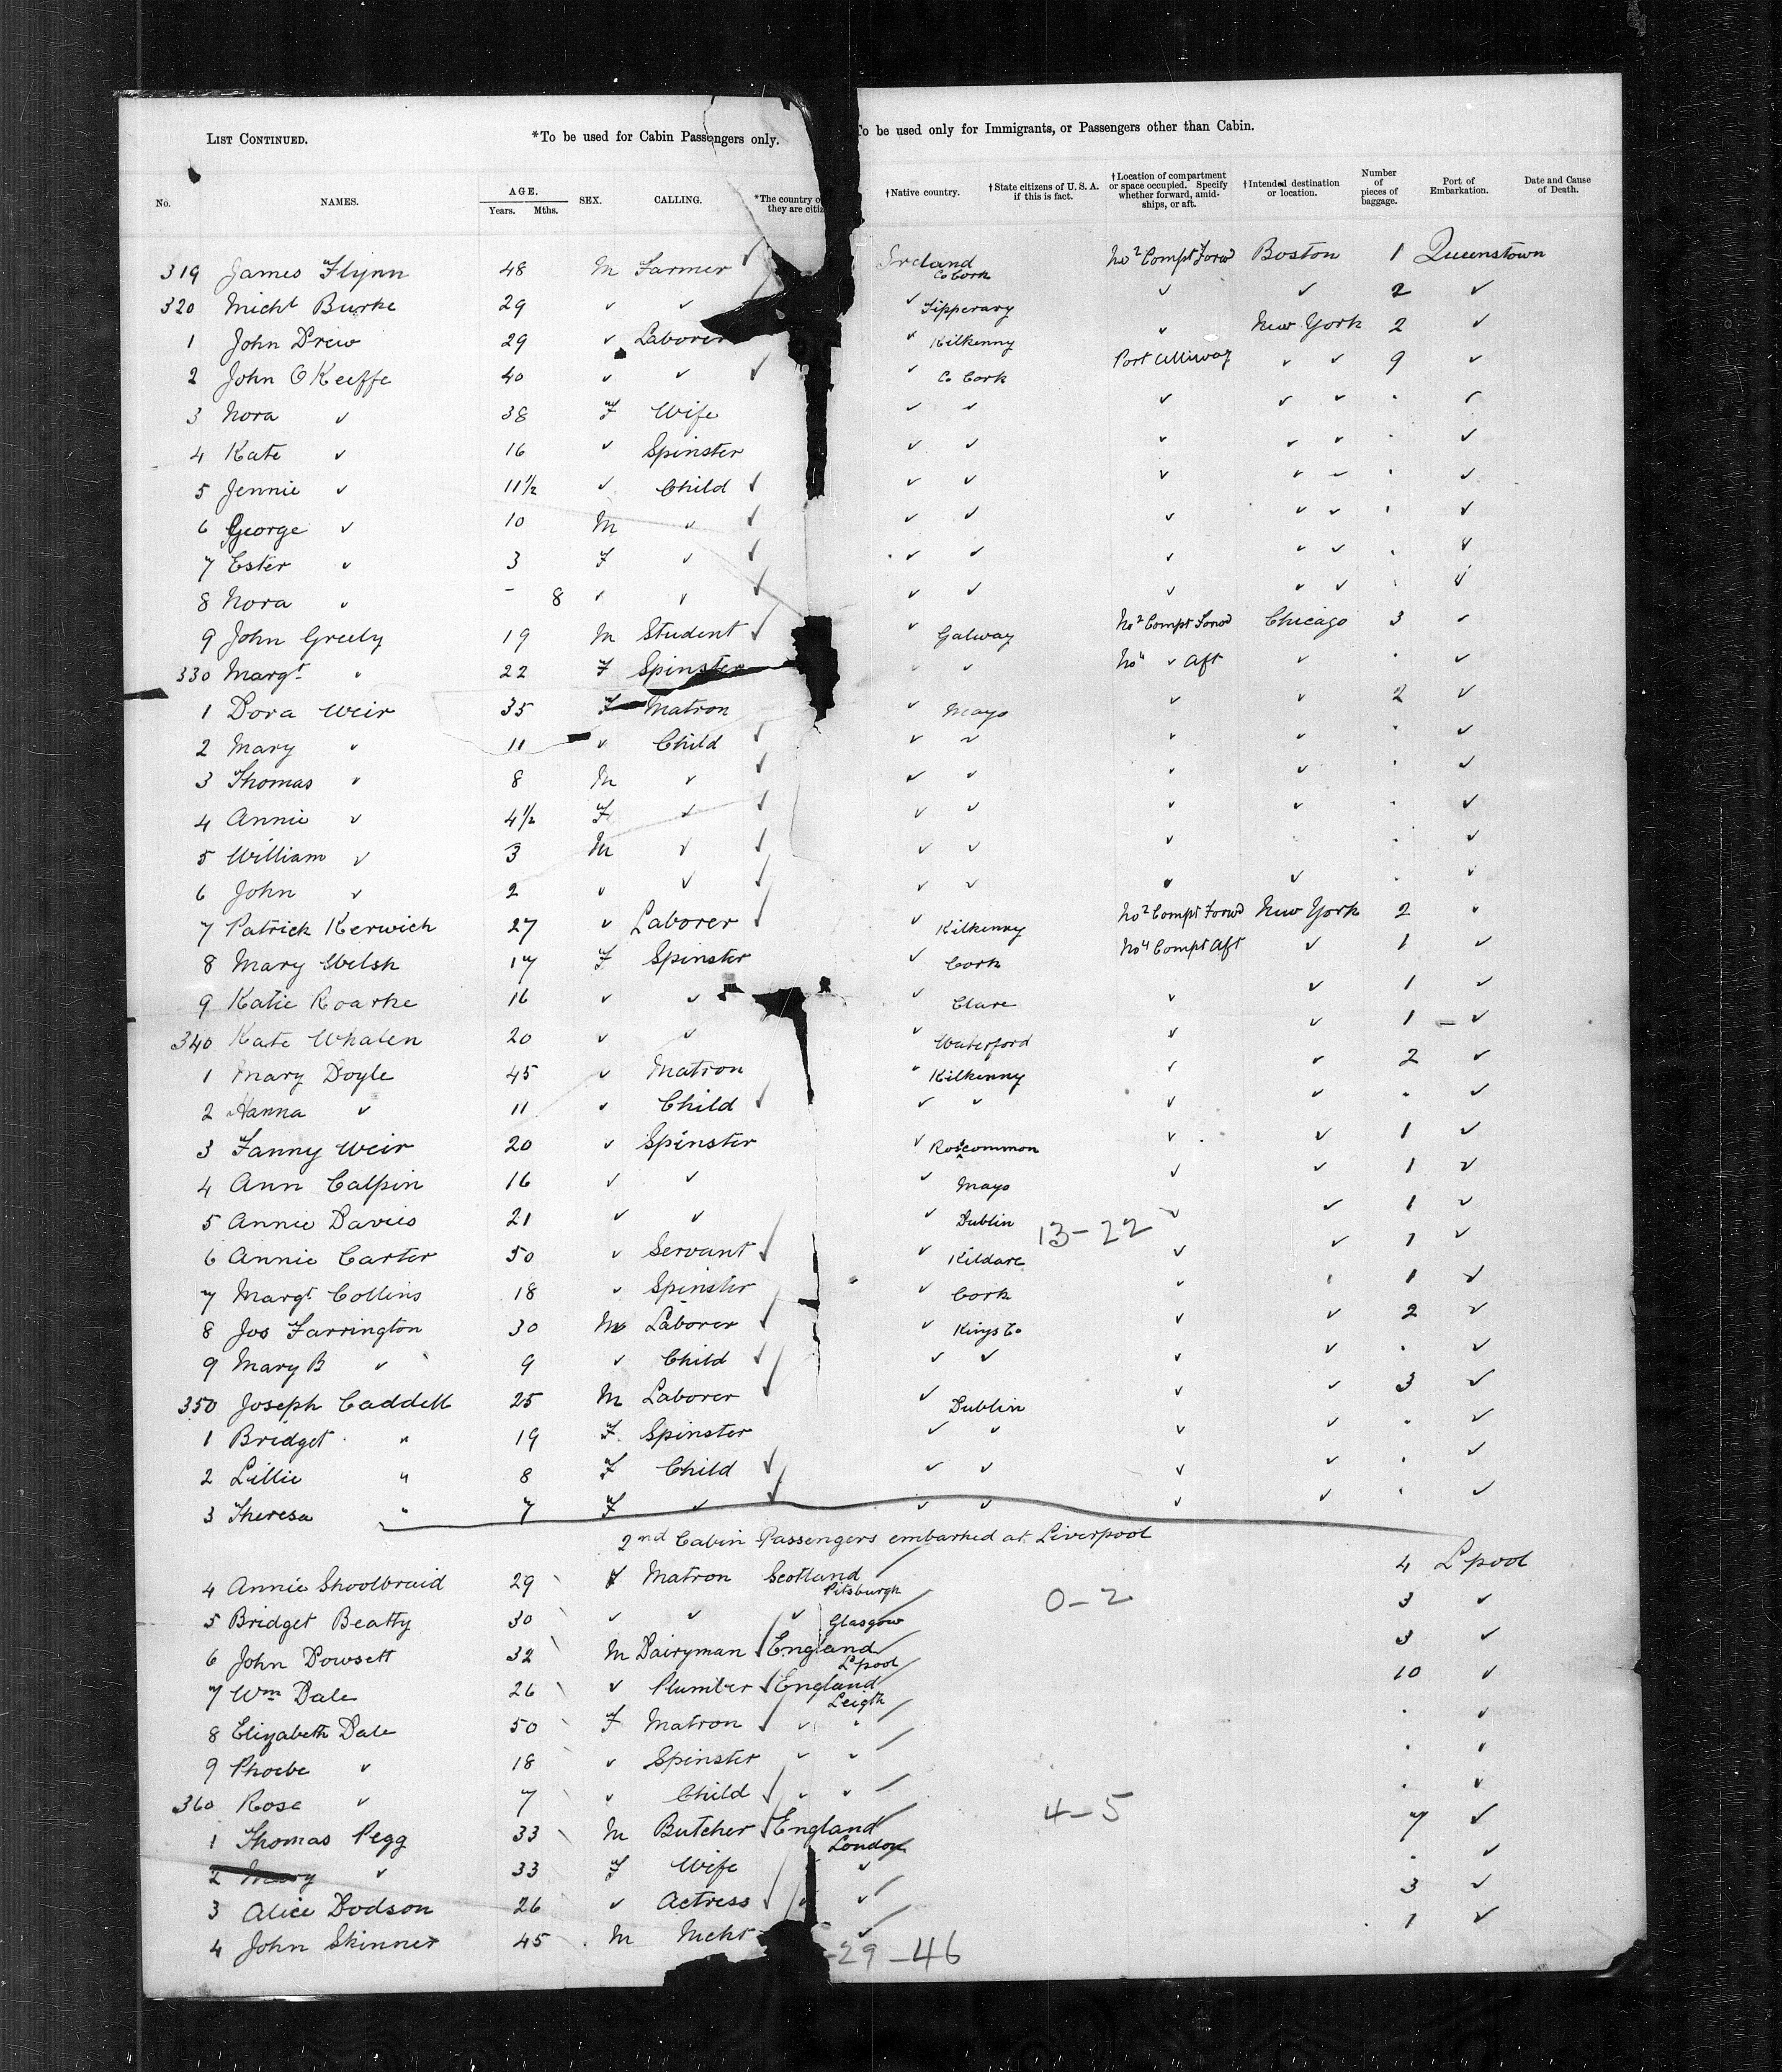 LIST CONTINUED. *To be used for Cabin Passengers only. To be used only for Immigrants, or Passengers other than Cabin.
No. NAMES. AGE. Years. Mths. SEX. CALLING. *The country of they are citiz †Native country. †State citizens of U. S. A. if this is fact. †Location of compartment or space occupied. Specify whether forward, amidships, or aft. †Intended destination or location. Number of pieces of baggage. Port of Embarkation. Date and Cause of Death.
319 James Flynn 48 M Farmer ✓ Ireland Co Cork No 2 Compt Forwd Boston 1 Queenstown
320 Michl Burke 29 ✓ ✓ ✓ Tipperary ✓ ✓ 2 ✓
1 John Drew 29 ✓ Laborer ✓ Kilkenny ✓ New York 2 ✓
2 John O Keeffe 40 ✓ ✓ ✓ ✓ Co Cork Port Alliway ✓ ✓ 9 ✓
3 Nora ✓ 38 F Wife ✓ ✓ ✓ ✓ ✓ . ✓
4 Kate ✓ 16 ✓ Spinster ✓ ✓ ✓ ✓ ✓ . ✓
5 Jennie ✓ 11 1/2 ✓ Child ✓ ✓ ✓ ✓ ✓ ✓ . ✓
6 George ✓ 10 M ✓ ✓ ✓ ✓ ✓ ✓ ✓ . ✓
7 Ester ✓ 3 F ✓ ✓ ✓ ✓ ✓ ✓ ✓ . ✓
8 Nora ✓ - 8 ✓ ✓ ✓ ✓ ✓ ✓ ✓ ✓ . ✓
9 John Greely 19 M Student ✓ ✓ Galway No 2 Compt Forwd Chicago 3 ✓
330 Margt ✓ 22 F Spinster ✓ ✓ No 4 ✓ Aft ✓ . ✓
1 Dora Weir 35 F Matron ✓ Mayo ✓ ✓ 2 ✓
2 Mary ✓ 11 ✓ Child ✓ ✓ ✓ ✓ ✓ . ✓
3 Thomas ✓ 8 M ✓ ✓ ✓ ✓ ✓ ✓ . ✓
4 Annie ✓ 4 1/2 F ✓ ✓ ✓ ✓ ✓ ✓ . ✓
5 William ✓ 3 M ✓ ✓ ✓ ✓ ✓ . . ✓
6 John ✓ 2 ✓ ✓ ✓ ✓ ✓ ✓ ✓ . ✓
7 Patrick Kerwich 27 ✓ Laborer ✓ ✓ Kilkenny No 2 Compt Forwd New York 2 ✓
8 Mary Welsh 17 F Spinster ✓ Cork No 4 Compt Aft ✓ 1 ✓
9 Katie Roarke 16 ✓ ✓ ✓ Clare ✓ ✓ 1 ✓
340 Kate Whalen 20 ✓ ✓ ✓ Waterford ✓ ✓ 1 ✓
1 Mary Doyle 45 ✓ Matron ✓ Kilkenny ✓ ✓ 2 ✓
2 Hanna ✓ 11 ✓ Child ✓ ✓ ✓ ✓ ✓ . ✓
3 Fanny Weir 20 ✓ Spinster ✓ Roscommon ✓ ✓ 1 ✓
4 Ann Calpin 16 ✓ ✓ ✓ Mayo ✓ ✓ 1 ✓
5 Annie Davies 21 ✓ ✓ ✓ Dublin 13-22 ✓ ✓ 1 ✓
6 Annie Carter 50 ✓ Servant ✓ ✓ Kildare ✓ ✓ 1 ✓
7 Margt Collins 18 ✓ Spinster ✓ Cork ✓ ✓ 1 ✓
8 Jos Farrington 30 M Laborer ✓ ✓ Kings Co ✓ ✓ 2 ✓
9 Mary B ✓ 9 ✓ Child ✓ ✓ ✓ ✓ ✓ . ✓
350 Joseph Caddell 25 M Laborer ✓ ✓ Dublin ✓ ✓ 3 ✓
1 Bridget " 19 F Spinster ✓ ✓ ✓ ✓ . ✓
2 Lillie " 8 F Child ✓ ✓ ✓ ✓ ✓ . ✓
3 Theresa " 7 F ✓ ✓ ✓ ✓ ✓ ✓ . ✓
2nd Cabin Passengers embarked at Liverpool
4 Annie Shoolbraid 29 F Matron Scotland Pitsburgh 4 L'pool
5 Bridget Beatty 30 ✓ ✓ ✓ Glasgow 0-2 3 ✓
6 John Dowsett 32 M Dairyman ✓ England L'pool 3 ✓
7 Wm Dale 26 ✓ Plumber ✓ England Leigth 10 ✓
8 Elizabeth Dale 50 F Matron ✓ ✓ " . ✓
9 Phoebe ✓ 18 ✓ Spinster ✓ ✓ . ✓
360 Rose ✓ 7 ✓ Child ✓ ✓ ✓ . ✓
1 Thomas Pegg 33 M Butcher ✓ England London 4-5 7 ✓
2 Mary ✓ 33 F Wife ✓ . ✓
3 Alice Dodson 26 ✓ Actress ✓ ✓ ✓ 3 ✓
4 John Skinner 45 M Mcht ✓ 1 ✓
29-46